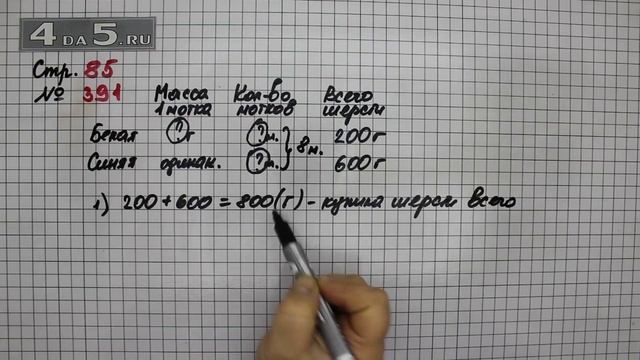 4 DA 5.RU
Стр. 85
№ 391
Масса 1 мотка
Кол-во мотков
Всего шерсти
Белая ? г ? м. 200 г
8 м.
Синяя одинак. ? м. 600 г
1) 200 + 600 = 800 (г) - купила шерсти всего